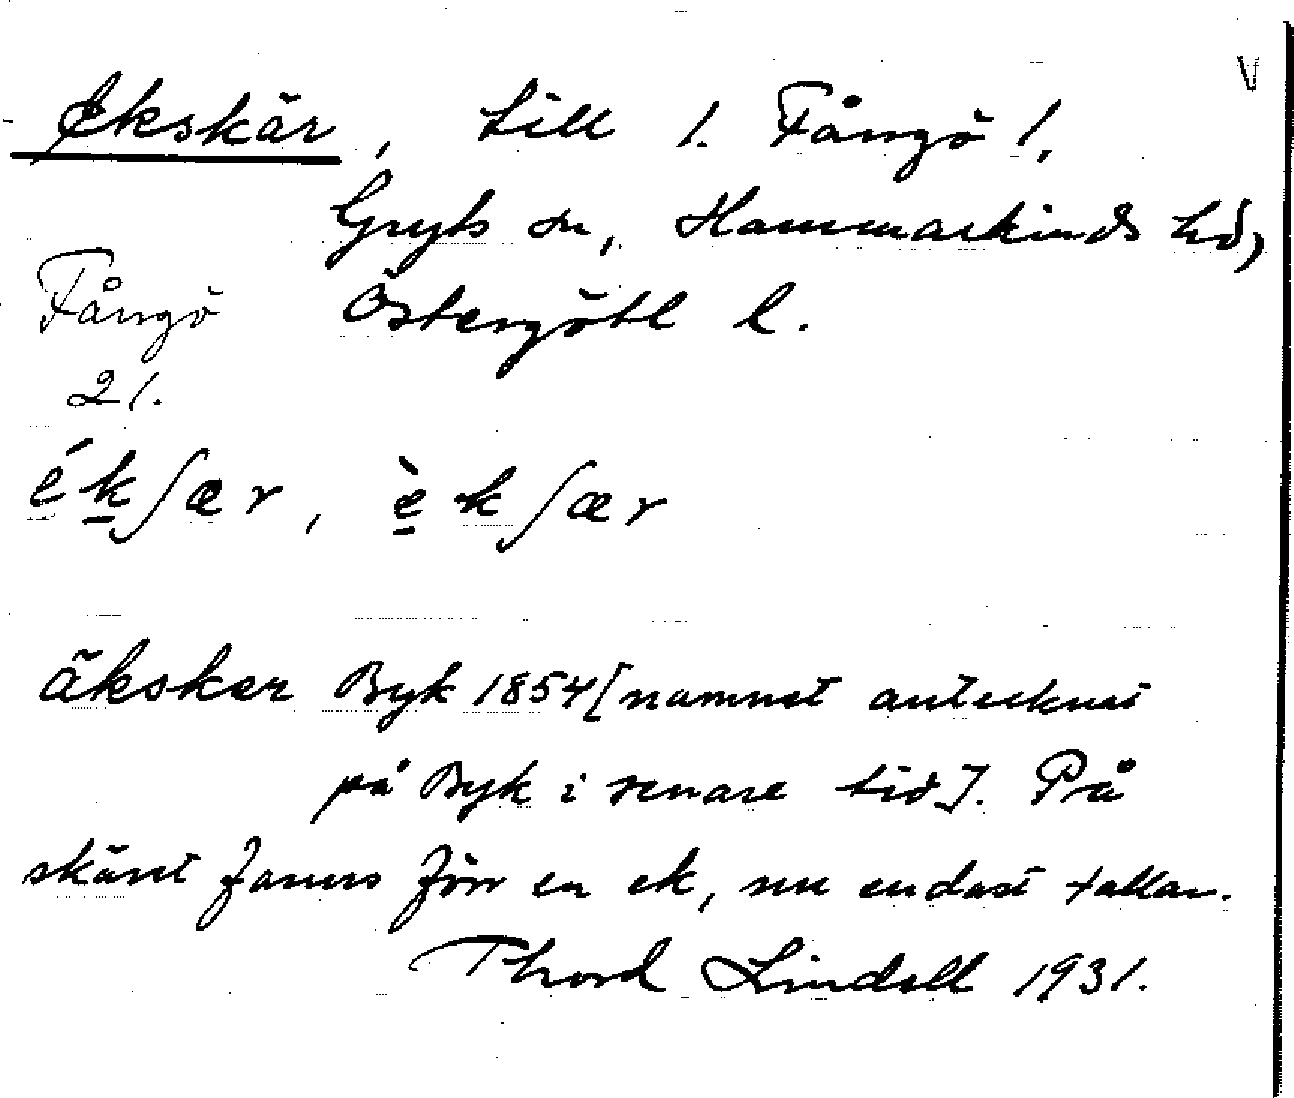 Ekskär, till 1. Fångö 1,
Gryts sn, Hammarkinds hd,
Fångö Östergötl l.
21.
ékʃær, èkʃær
äksker Byk 1854 [namnet antecknat
på Byk i senare tid]. På
skäret fanns förr en ek, nu endast tallar.
Thord Lindell 1931.